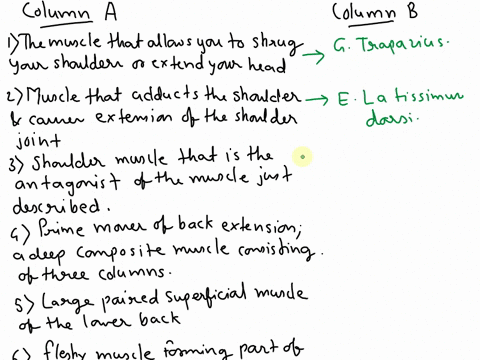 Column A
Column B
1) The muscle that allows you to shrug
your shoulders or extend your head
→ G. Trapazius.
2) Muscle that adducts the shoulder
& causes extension of the shoulder
joint
→ E. Latissimus
dorsi.
3) Shoulder muscle that is the
antagonist of the muscle just
described.
4) Prime mover of back extension;
a deep composite muscle consisting
of three columns.
5) Large paired superficial muscle
of the lower back
6) fleshy muscle forming part of